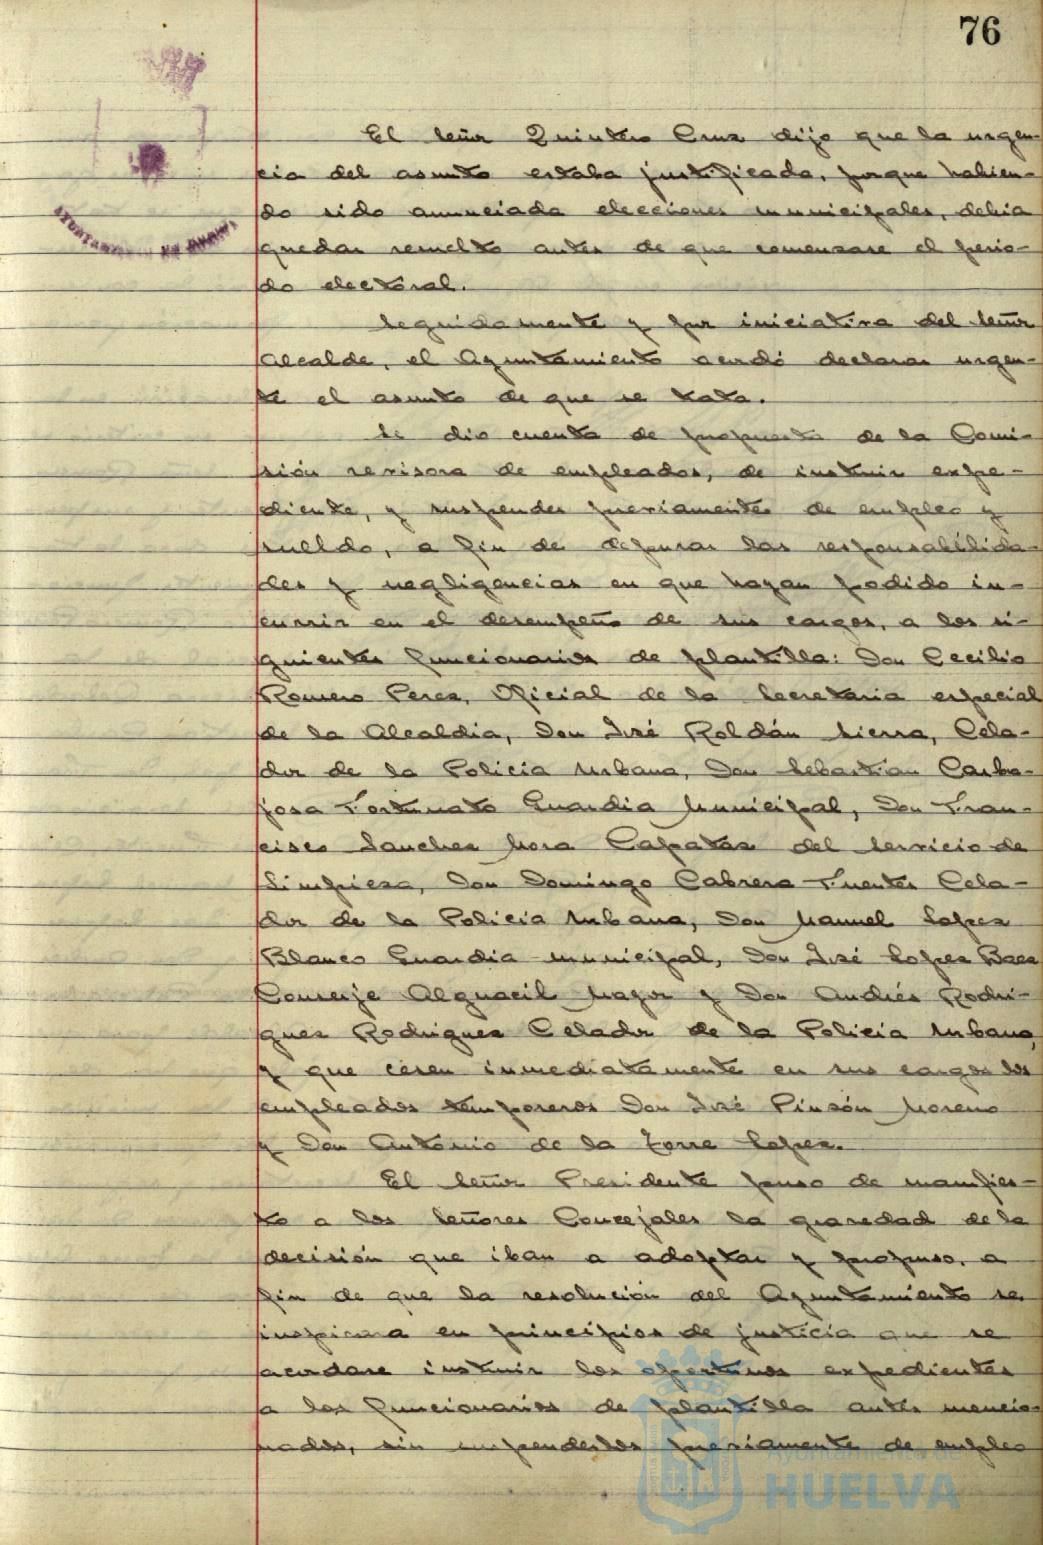 76
AYUNTAMIENTO DE HUELVA
El Señor Quintero Cruz dijo que la urgen-
cia del asunto estaba justificada, porque habien-
do sido anunciada elecciones municipales, debia
quedar resuelto antes de que comenzare el perio-
do electoral.
Seguidamente y por iniciativa del Señor
Alcalde, el Ayuntamiento acordó declarar urgen-
te el asunto de que se trata.
Se dio cuenta de propuesta de la Comi-
sión revisora de empleados, de instruir expe-
diente, y suspender previamente de empleo y
sueldo, a fin de depurar las responsabilida-
des y negligencias en que hayan podido in-
currir en el desempeño de sus cargos, a los si-
guientes funcionarios de plantilla: Don Cecilio
Romero Perez, Oficial de la Secretaria especial
de la Alcaldia, Don José Roldán Sierra, Cela-
dor de la Policia Urbana, Don Sebastian Carba-
josa Fortunato Guardia Municipal, Don Fran-
cisco Sanchez Mora Capataz del Servicio de
Limpieza, Don Domingo Cabrera Fuentes Cela-
dor de la Policia Urbana, Don Manuel Lopez
Blanco Guardia municipal, Don José Lopez Baez
Conserje Alguacil Mayor y Don Andrés Rodri-
guez Rodriguez Celador de la Policia Urbana,
y que cesen inmediatamente en sus cargos los
empleados temporeros Don José Pinzón Moreno
y Don Antonio de la Torre Lopez.
El Señor Presidente puso de manifies-
to a los Señores Concejales la gravedad de la
decisión que iban a adoptar y propuso, a
fin de que la resolución del Ayuntamiento se
inspirara en principios de justicia que se
acordare instruir los oportunos expedientes
a los funcionarios de plantilla antes mencio-
nados, sin suspenderlos previamente de empleo
Ayuntamiento de
HUELVA